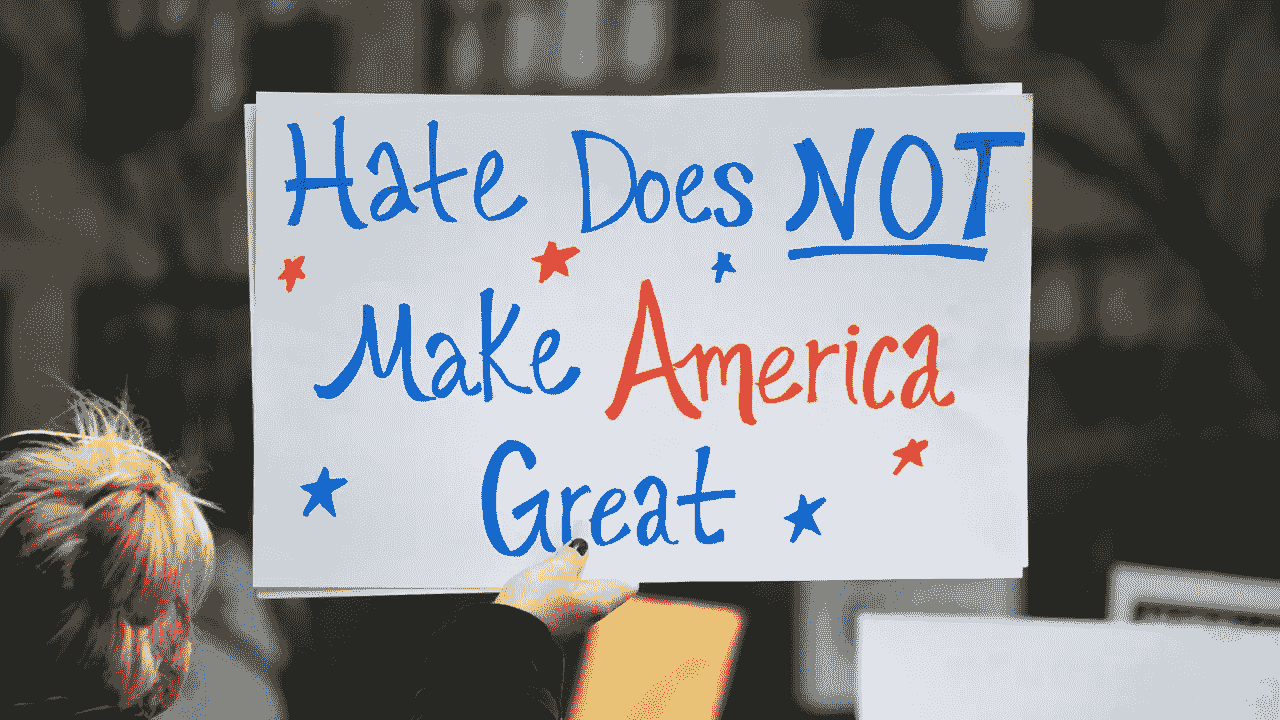 Hate Does NOT
Make America
Great